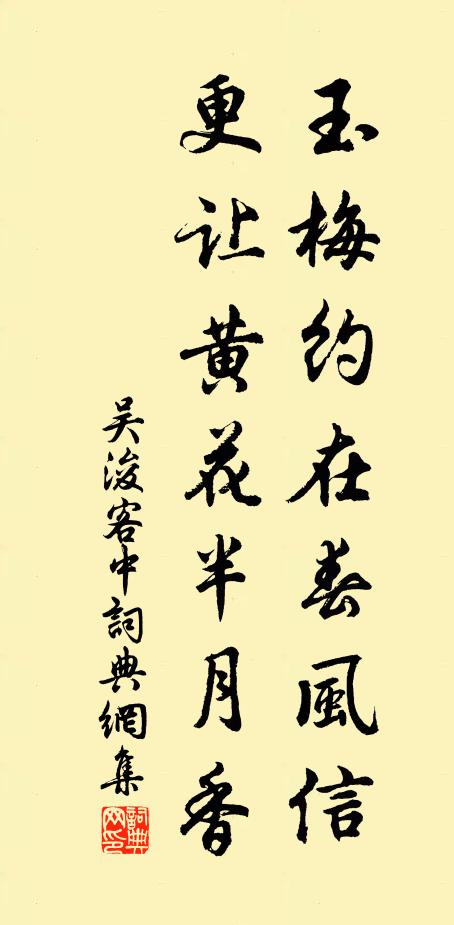 玉梅约在春風信
更让黄花半月香
吴浚客中詞典網集
詞典网印